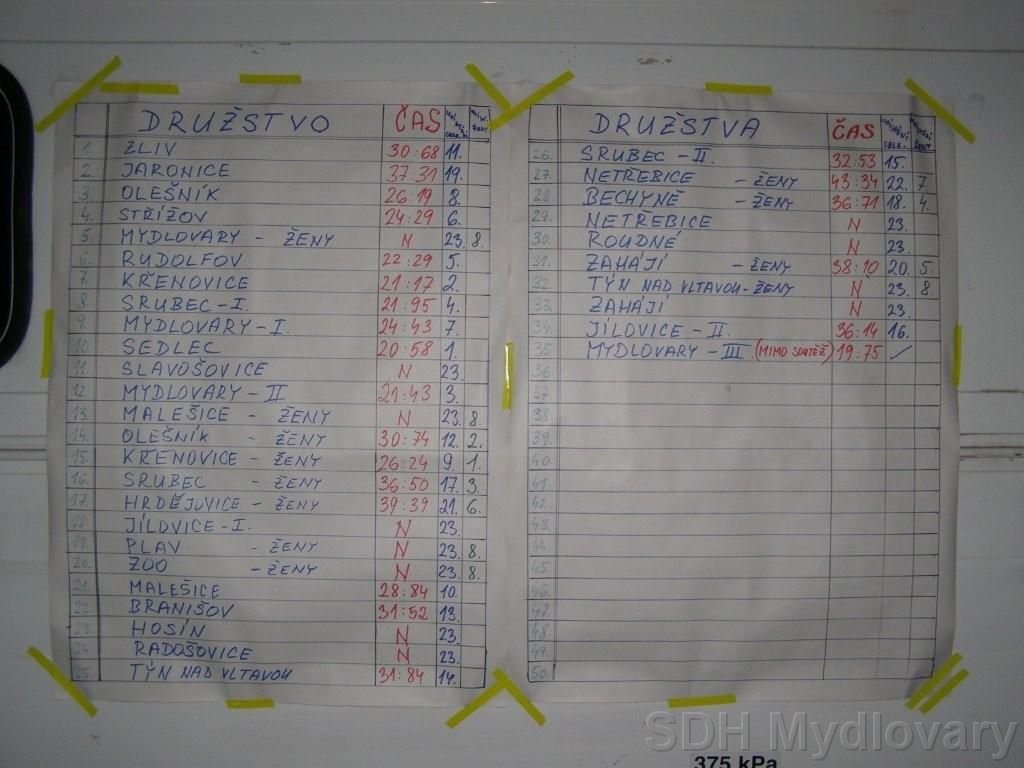 DRUŽSTVO ČAS
1. ZLIV 30:68 11.
2. JARONICE 37:31 19.
3. OLEŠNÍK 26:19 8.
4. STŘÍŽOV 24:29 6.
5. MYDLOVARY - ŽENY N 23. 8.
6. RUDOLFOV 22:29 5.
7. KŘENOVICE 21:17 2.
8. SRUBEC - I. 21:95 4.
9. MYDLOVARY - I. 24:43 7.
10. SEDLEC 20:58 1.
11. SLAVOŠOVICE N 23.
12. MYDLOVARY - II. 21:43 3.
13. MALEŠICE - ŽENY N 23. 8.
14. OLEŠNÍK - ŽENY 30:74 12. 2.
15. KŘENOVICE - ŽENY 26:24 9. 1.
16. SRUBEC - ŽENY 36:50 17. 3.
17. HRDĚJOVICE - ŽENY 39:39 21. 6.
18. JÍLOVICE - I. N 23.
19. PLAV - ŽENY N 23. 8.
20. ZOO - ŽENY N 23. 8.
21. MALEŠICE 28:84 10.
22. BRANIŠOV 31:52 13.
23. HOSÍN N 23.
24. RADOŠOVICE N 23.
25. TÝN NAD VLTAVOU 31:84 14.
DRUŽSTVA ČAS UMÍSTĚNÍ CELK. ŽENY
26. SRUBEC - II. 32:53 15.
27. NETŘEBICE - ŽENY 43:34 22. 7.
28. BECHYNĚ - ŽENY 36:71 18. 4.
29. NETŘEBICE N 23.
30. ROUDNÉ N 23.
31. ZAHÁJÍ - ŽENY 38:10 20. 5.
32. TÝN NAD VLTAVOU - ŽENY N 23. 8.
33. ZAHÁJÍ N 23.
34. JÍLOVICE - II. 36:14 16.
35 MYDLOVARY - III (MIMO SOUTĚŽ) 19:75 ✓
36.
37.
38.
39.
40.
41.
42.
43.
44.
45.
46.
47.
48.
49.
50.
375 kPa
SDH Mydlovary